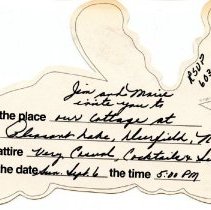 Jim and Marie
invite you to
the place our cottage at
Pleasant Lake, Deerfield, N
attire Very Casual, Cocktails &
the date Sun Sept. 6 the time 5:00 PM
RSVP
603